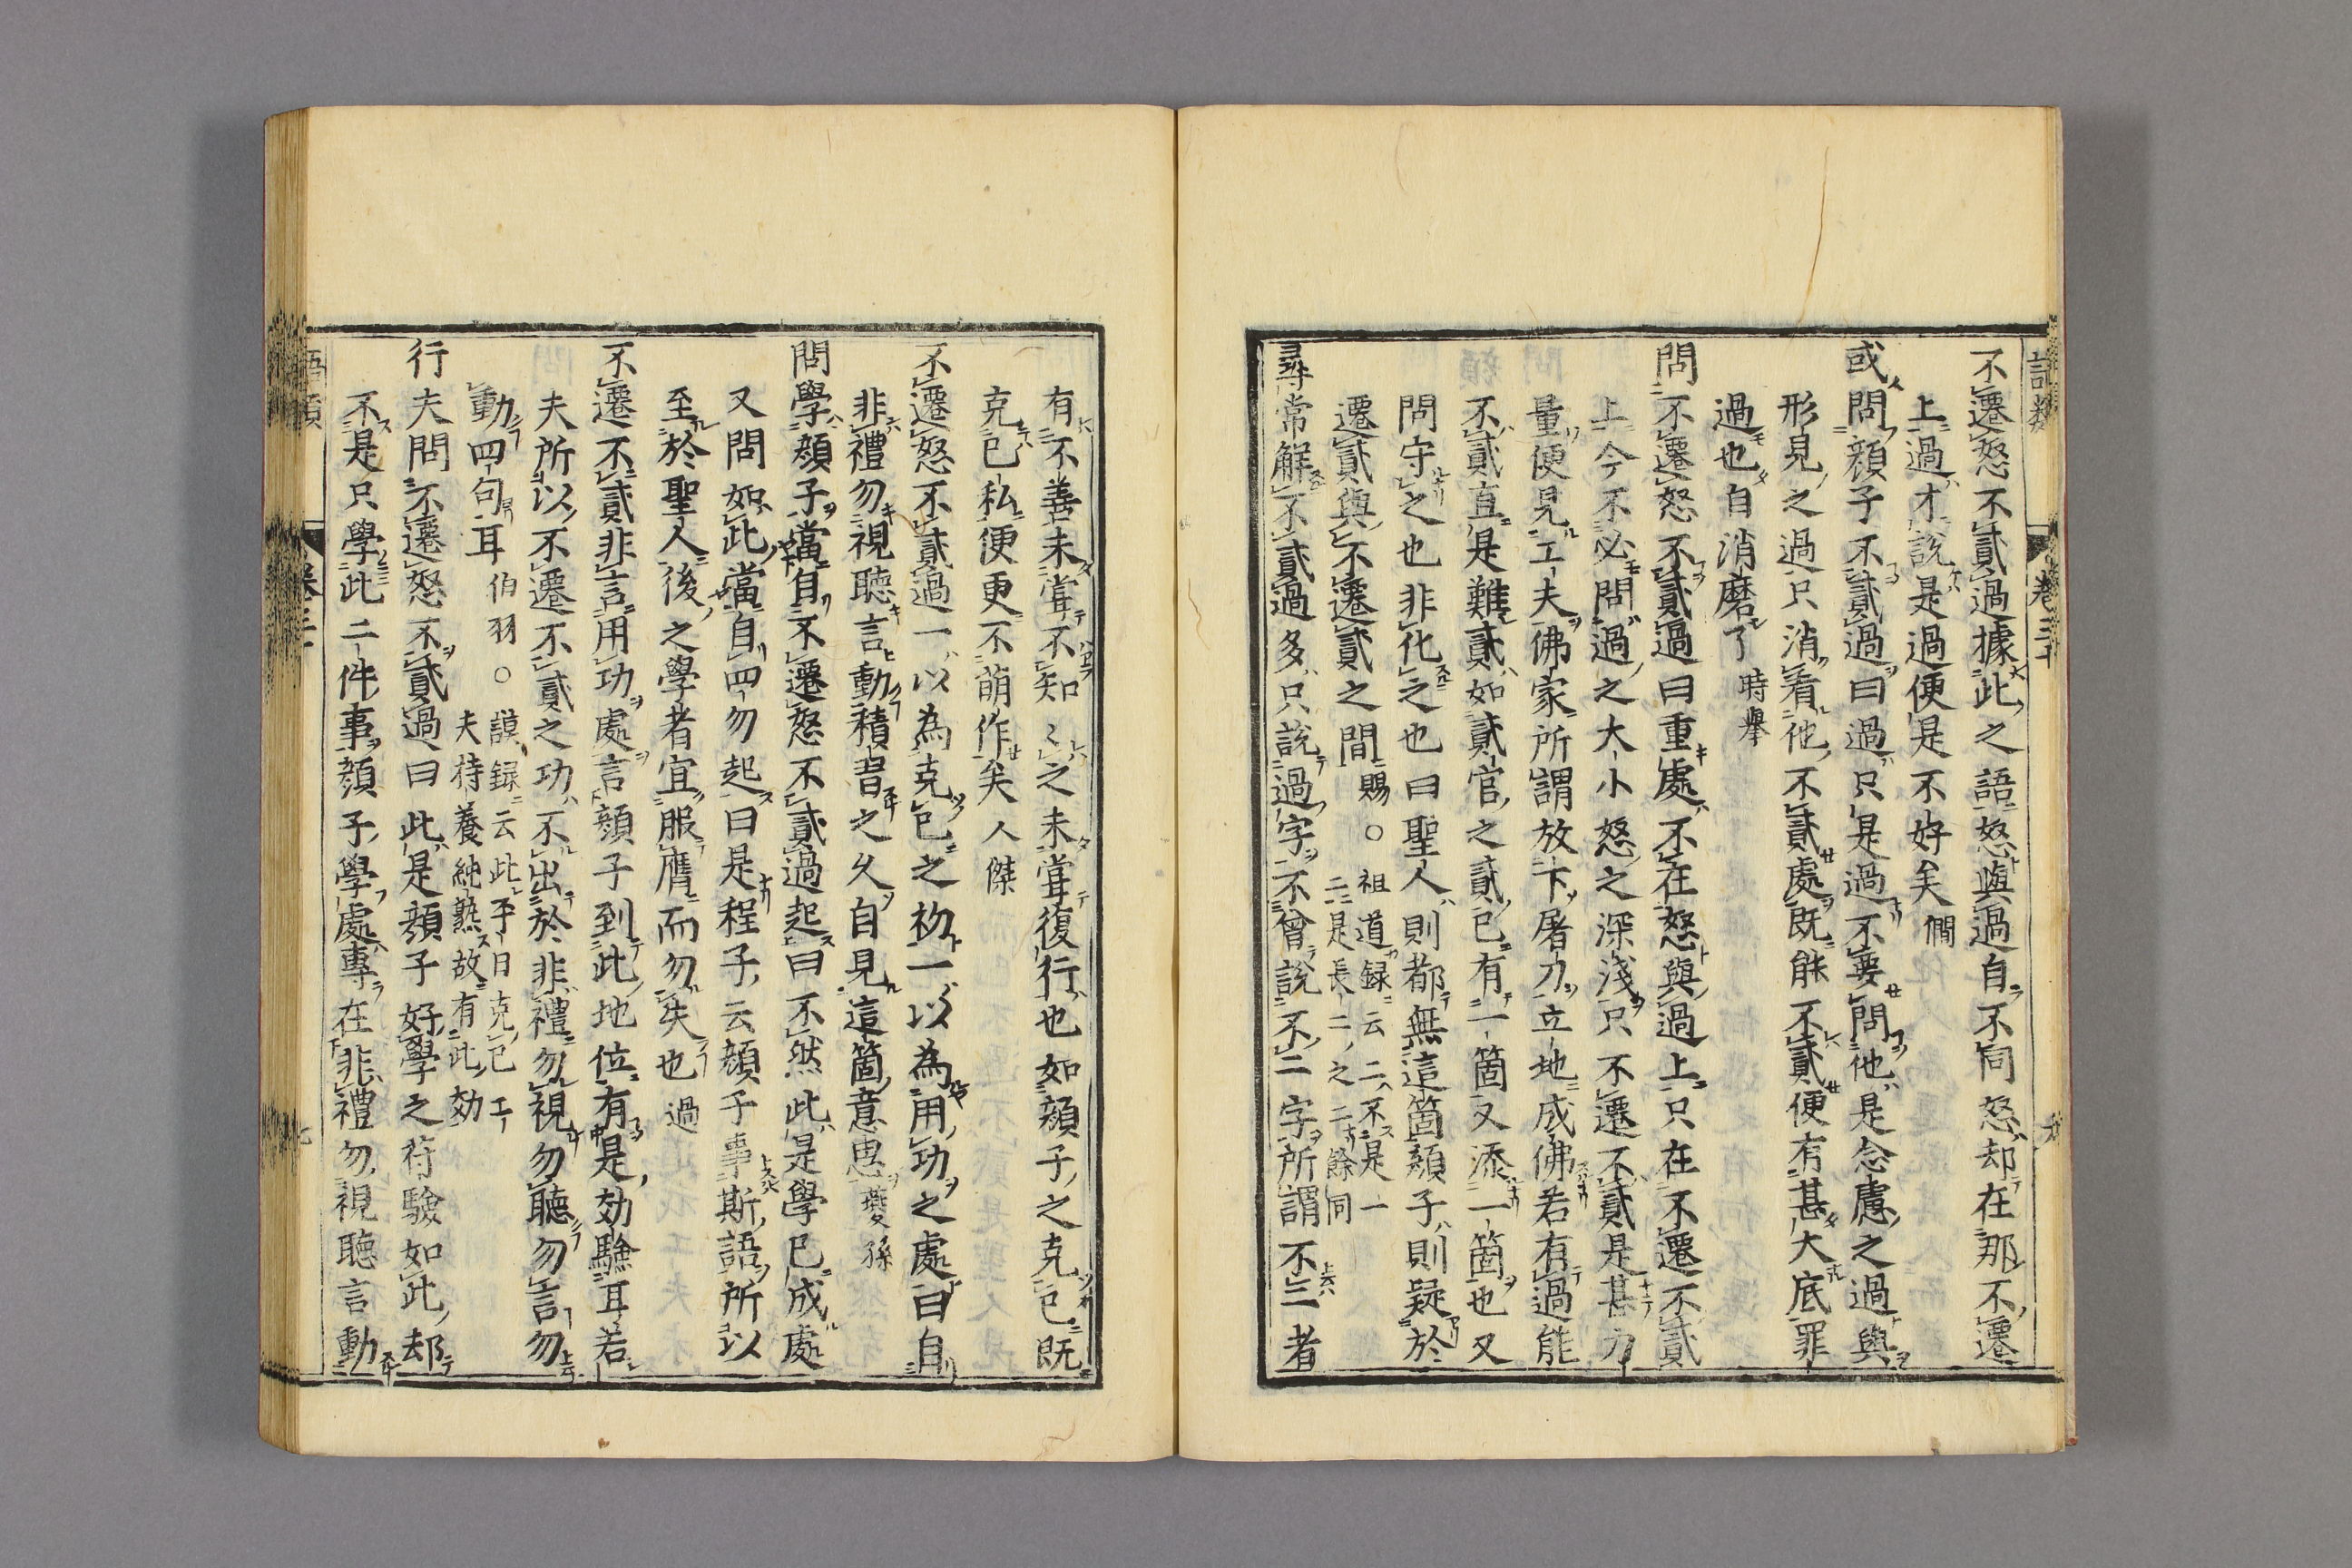 不遷怒不貳過據此之語怒與過自不同怒却在那不遷
上過才說是過便是不好矣 僩
或問顏子不貳過曰過只是過不要問他是念慮之過與
形見之過只消看他不貳處既能不貳便有甚大底罪
過也自消磨了 時擧
問不遷怒不貳過曰重處不在怒與過上只在不遷不貳
上今不必問過之大小怒之深淺只不遷不貳是甚力
量便見工夫佛家所謂放下屠刀立地成佛若有過能
不貳直是難貳如貳官之貳已有一箇又添一箇也又
問守之也非化之也曰聖人則都無這箇顏子則疑於
遷貳與不遷貳之間 賜○祖道録云二不是一
二是長二之二餘同
尋常解不貳過多只說過字不曾說不二字所謂不二者
有不善未嘗不知〻之未嘗復行也如顏子之克已既
克已私便更不萠作矣 人傑
不遷怒不貳過一以為克已之初一以為用功之處曰自
非禮勿視聽言動積習之久自見這箇意思 夔孫
問學顏子當自不遷怒不貳過起曰不然此是學已成處
又問如此當自四勿起曰是程子云顏子事斯語所以
至於聖人後之學者宜服膺而勿失也 過
不遷不貳非言用功處言顏子到此地位有是効驗耳若
夫所以不遷不貳之功不出於非禮勿視勿聽勿言勿
動四句耳 伯羽○謨録云此平日克已工
夫持養純熟故有此効
行夫問不遷怒不貳過曰此是顏子好學之符驗如此却
不是只學此二件事顏子學處專在非禮勿視聽言動